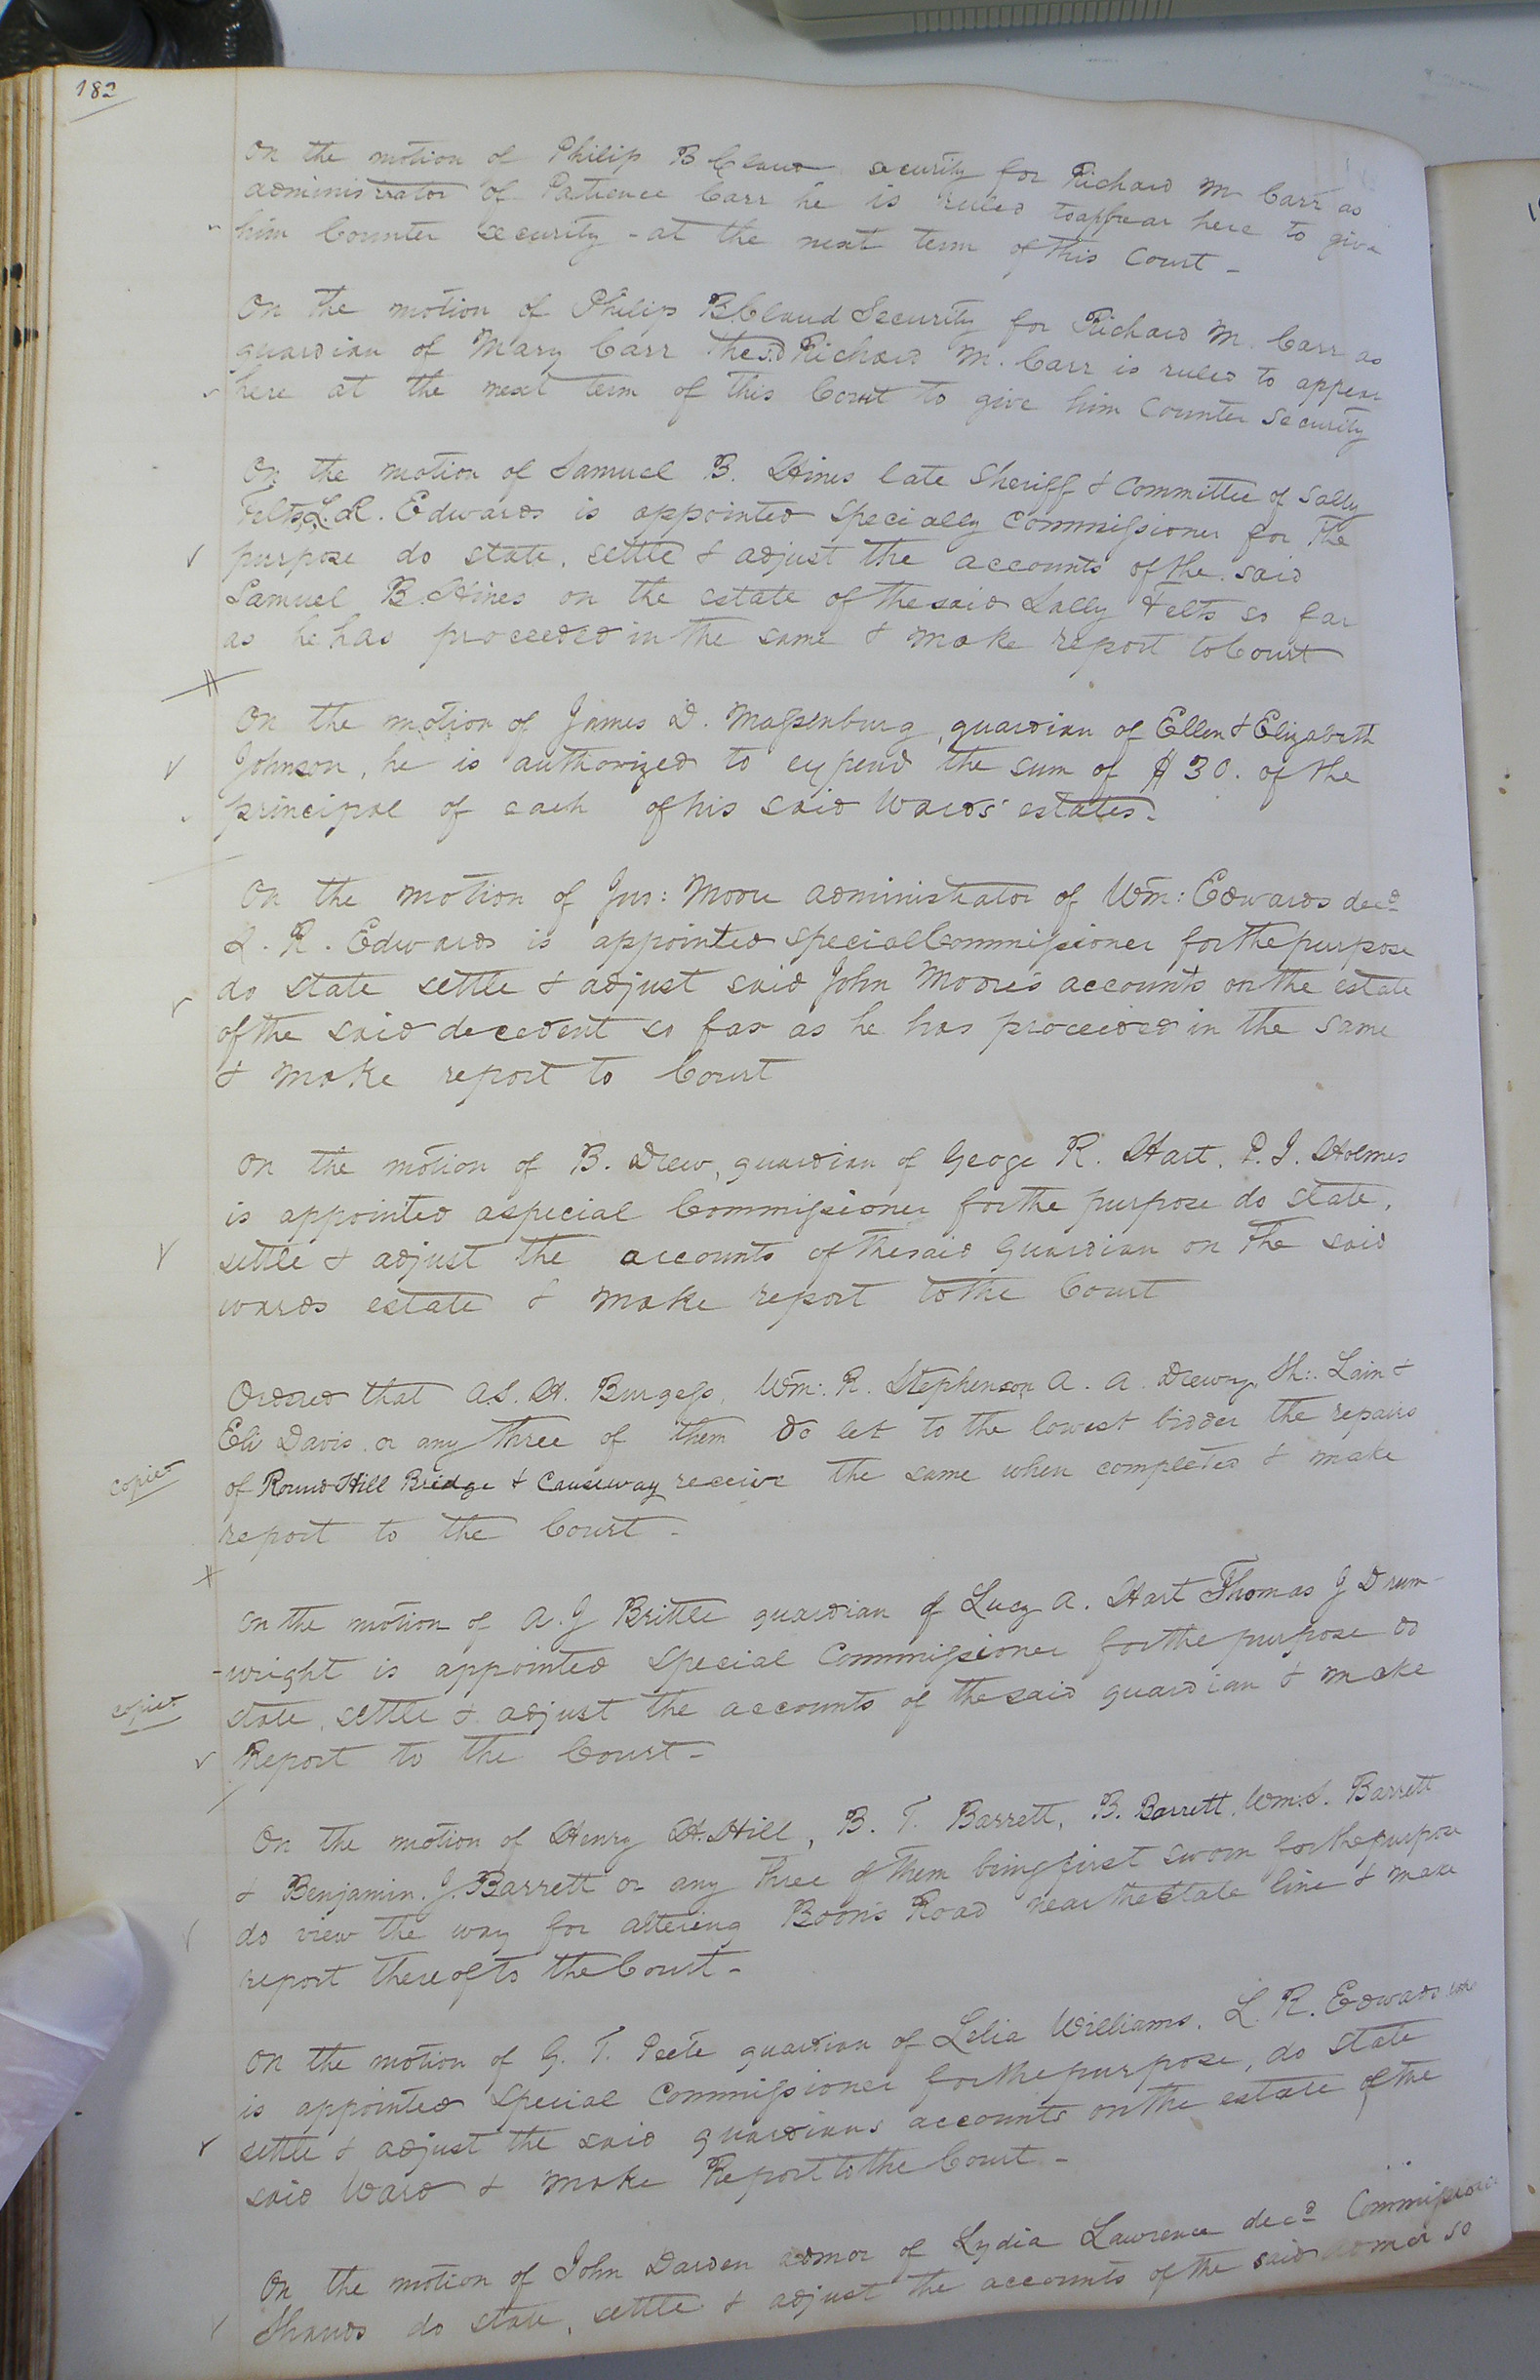 182
On the motion of Philip B Claud security for Richard M Carr as
administrator of Patience Carr he is ruled to appear here to give
him Counter security - at the next term of this Court -
On the motion of Philip B Claud Security for Richard M. Carr as
guardian of Mary Carr the sd Richard M. Carr is ruled to appear
here at the next term of this Court to give him Counter security
On the motion of Samuel B. Hines late Sheriff & Committee of Sally
Felts L. R. Edwards is appointed specially commissioner for the
purpose do state, settle & adjust the accounts of the said
Samuel B. Hines on the estate of the said Sally Felts so far
as he has proceeded in the same & make report to Court
On the motion of James D. Massenburg, guardian of Ellen & Elizabeth
Johnson, he is authorized to expend the sum of $30. of the
principal of each of his said Wards' estates.
On the motion of Jno: Moore administrator of Wm: Edwards decd
L. R. Edwards is appointed special Commissioner for the purpose
do state settle & adjust said John Moore's accounts on the estate
of the said decedent so far as he has proceeded in the same
& make report to Court
On the motion of B. Drew, guardian of Geoge R. Hart, P. J. Holmes
is appointed a special Commissioner for the purpose do state,
settle & adjust the accounts of the said guardian on the said
wards estate & make report to the Court
Ordered that A.S. H. Burgess, Wm: R. Stephenson A. A. Drewry, Th: Lain &
Eli Davis or any three of them do let to the lowest bidder the repairs
copied
of Round Hill Bridge & Causeway receive the same when completed & make
report to the Court -
On the motion of A. J Brittle guardian of Lucy A. Hart Thomas J Drum-
-wright is appointed special Commissioner for the purpose do
copied
state, settle & adjust the accounts of the said guardian & make
Report to the Court -
On the motion of Henry H. Hill, B. T. Barrett, B. Barrett, Wm. S. Barrett
& Benjamin. J. Barrett or any three of them being first sworn for the purpose
do view the way for altering Boon's Road near the State line & make
report thereof to the Court -
On the motion of G. T. Peete guardian of Lelia Williams, L. R. Edwards who
is appointed special Commissioner for the purpose, do state
settle & adjust the said guardians accounts on the estate of the
said Ward & make Report to the Court -
On the motion of John Darden admor of Lydia Lawrence decd Commissioner
Shands do state, settle & adjust the accounts of the said admor so